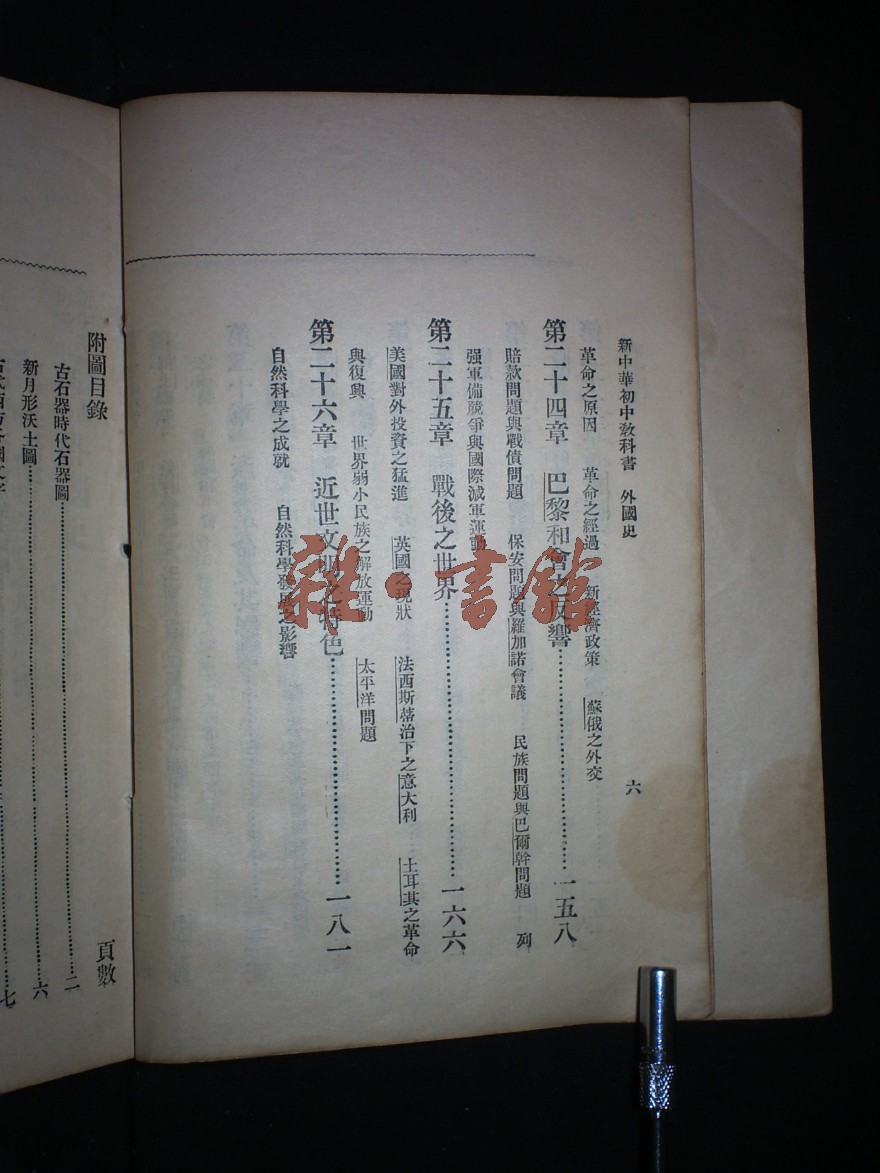 新中華初中敎科書　外國史　六
革命之原因　革命之經過　新經濟政策　蘇俄之外交
第二十四章　巴黎和會之反響……一五八
賠款問題與戰債問題　保安問題與羅加諾會議　民族問題與巴爾幹問題　列
强軍備競爭與國際減軍運動
第二十五章　戰後之世界……一六六
美國對外投資之猛進　英國之現狀　法西斯蒂治下之意大利　土耳其之革命
與復興　世界弱小民族之解放運動　太平洋問題
第二十六章　近世文明之特色……一八一
自然科學之成就　自然科學發展之影響
附圖目錄　頁數
古石器時代石器圖……二
新月形沃土圖……六
七
雜·書館